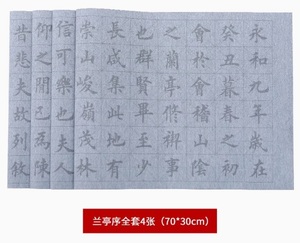 永和九年歲在
癸丑暮春之初
會於會稽山陰
之蘭亭脩稧事
也羣賢畢至少
長咸集此地有
崇山峻嶺茂林
信可樂也夫人
仰之閒已為陳
昔悲夫故列敘
兰亭序全套4张（70*30cm）